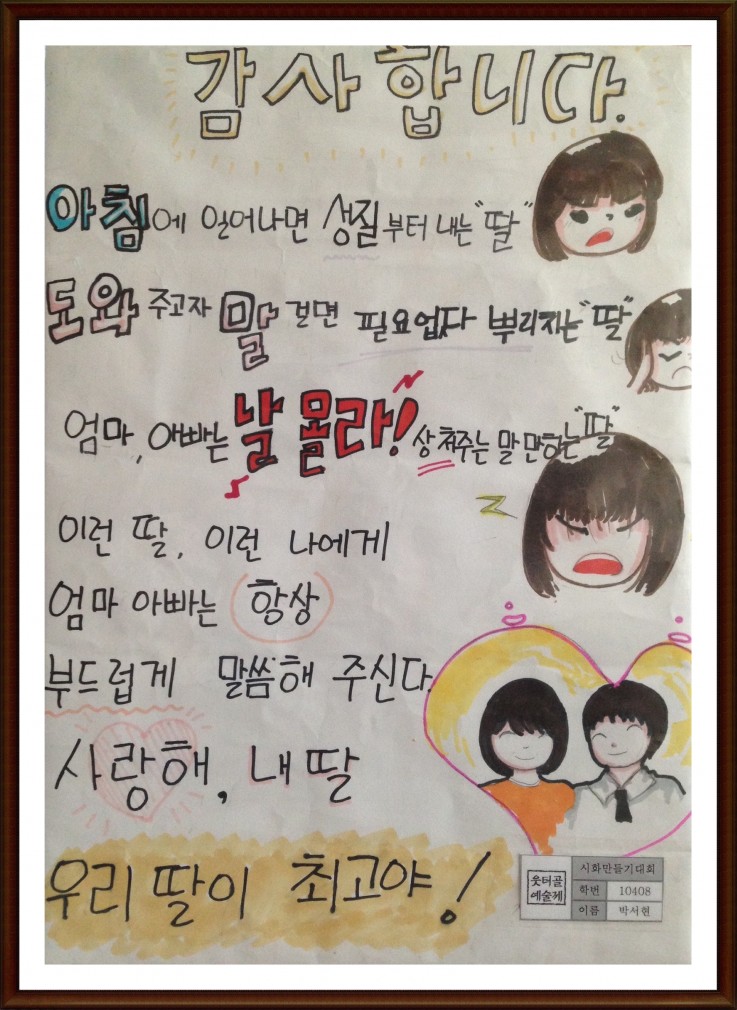 감사합니다.
아침에 일어나면 성질부터 내는 "딸"
도와주고자 말 걸면 필요없다 뿌리치는 "딸"
엄마, 아빠는 날 몰라! 상처주는 말만하는 "딸"
이런 딸, 이런 나에게
엄마 아빠는 항상
부드럽게 말씀해 주신다.
사랑해, 내 딸
우리 딸이 최고야!
웃터골
예술제
시화만들기대회
학번 10408
이름 박서현